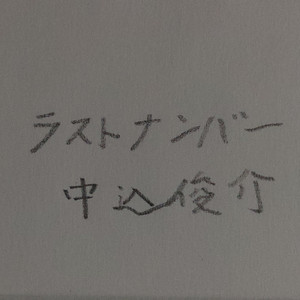 ラストナンバー
申込俊介